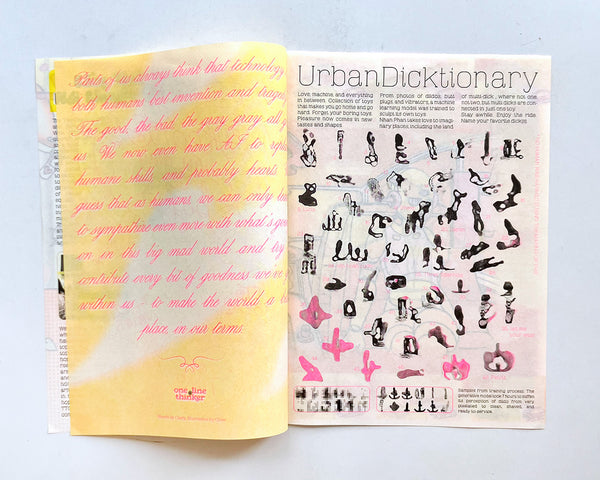 Parts of us always think that technology
both humans best invention and
The good, the bad, the gray gray all
us. We now even have A.I to
humans skills and probably hearts
guess that as humans, we can only
to sympathize even more with what's
on in this big mad world and try
contribute every bit of goodness we've
within us to make the world a
place, in our terms.
one line
thinker
UrbanDicktionary
Love, machine, and everything
in between. Collection of toys
that makes you go home and go
hard. Forget your boring toys.
Pleasure now comes in new
tastes and shapes.
From photos of dildos, butt
plugs and vibrators, a machine
learning model was trained to
sculpt its own toys.
Nhan Phan takes love to imagi-
nary places, including the land
of multi-dick, where not one,
not two, but multi dicks are con-
nected in just one toy.
Stay awhile. Enjoy the ride.
Name your favorite dickies.
Samples from training process. The
generative model took 7 hours to
its perception of dildo from very
pixelated to clean, shaved, and
ready-to-service.